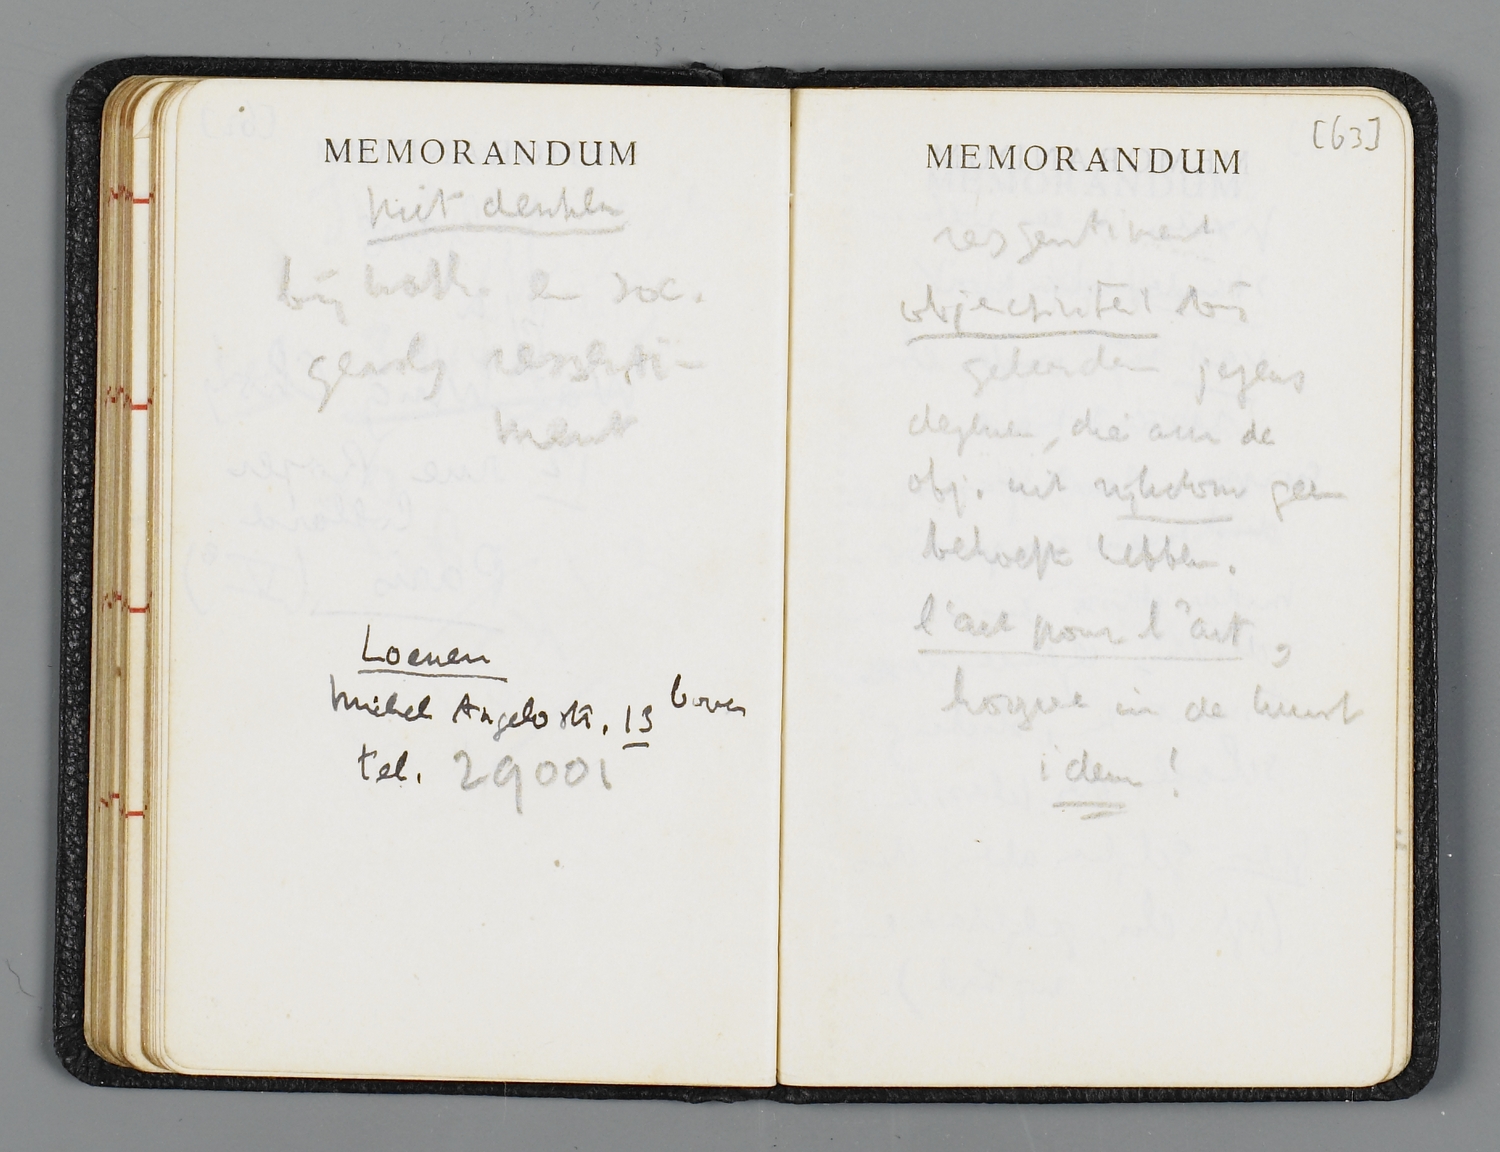 MEMORANDUM
niet denken
bij kath. en soc.
ressenti-
ment
Loenen
Michel Angelostr. 13 boven
tel. 29001
MEMORANDUM
[63]
ressentiment
objectiviteit bij
geleerden jegens
degenen, die aan de
obj. uit rijkdom geen
behoefte hebben.
l'art pour l'art,
hoogere in de kunst
idem!